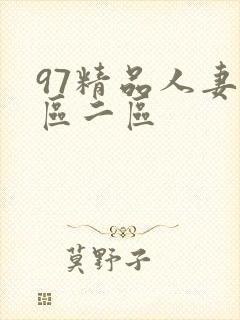 97精品人妻
區二區
莫野子